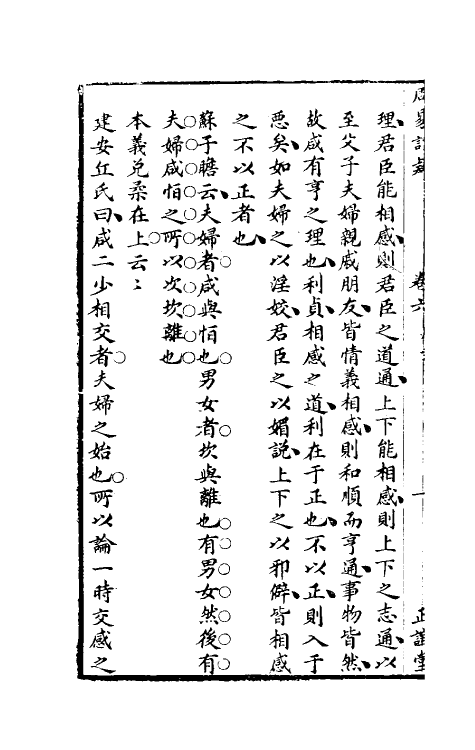 理君臣能相感則君臣之道通上下能相感則上下之志通以
至父子夫婦親戚朋友皆情義相感則和順而亨通事物皆然
故咸有亨之理也利貞相感之道利在于正也不以正則入于
惡矣如夫婦之以淫姣君臣之以媚說上下之以邪僻皆相感
之不以正者也
蘇子瞻云夫婦者咸與恒也男女者坎與離也有男女然後有
夫婦咸恒之所以次坎離也
本義兌柔在上云〻
建安丘氏曰咸二少相交者夫婦之始也所以論一時交感之